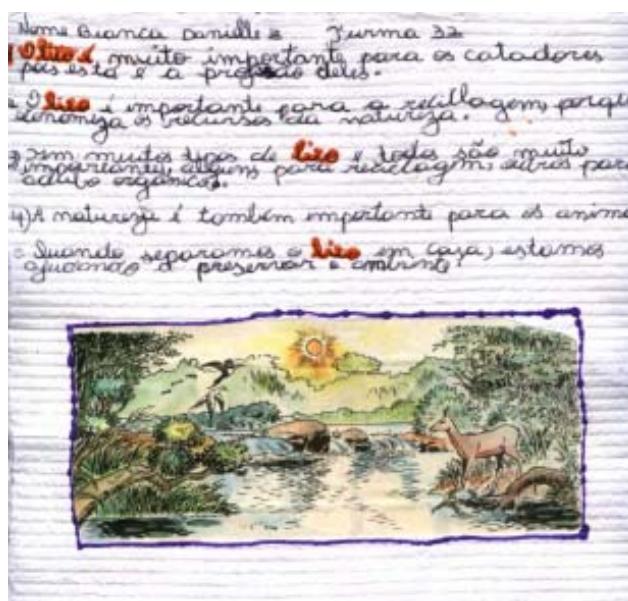 Nome Bianca Danielle Turma 32
O lixo é, muito importante para os catadores
pois esta é a profissão deles.
O lixo é importante para a recillagem, porqu
economiza os recursos da natureza.
3) Tem muitos tipos de lixo e todos são muito
importante, alguns para reciclagem, outros para
adubo orgânicos.
4) A natureza é também importante para os anima
Quando separamos o lixo em casa, estamos
ajudando a preservar o ambiente.